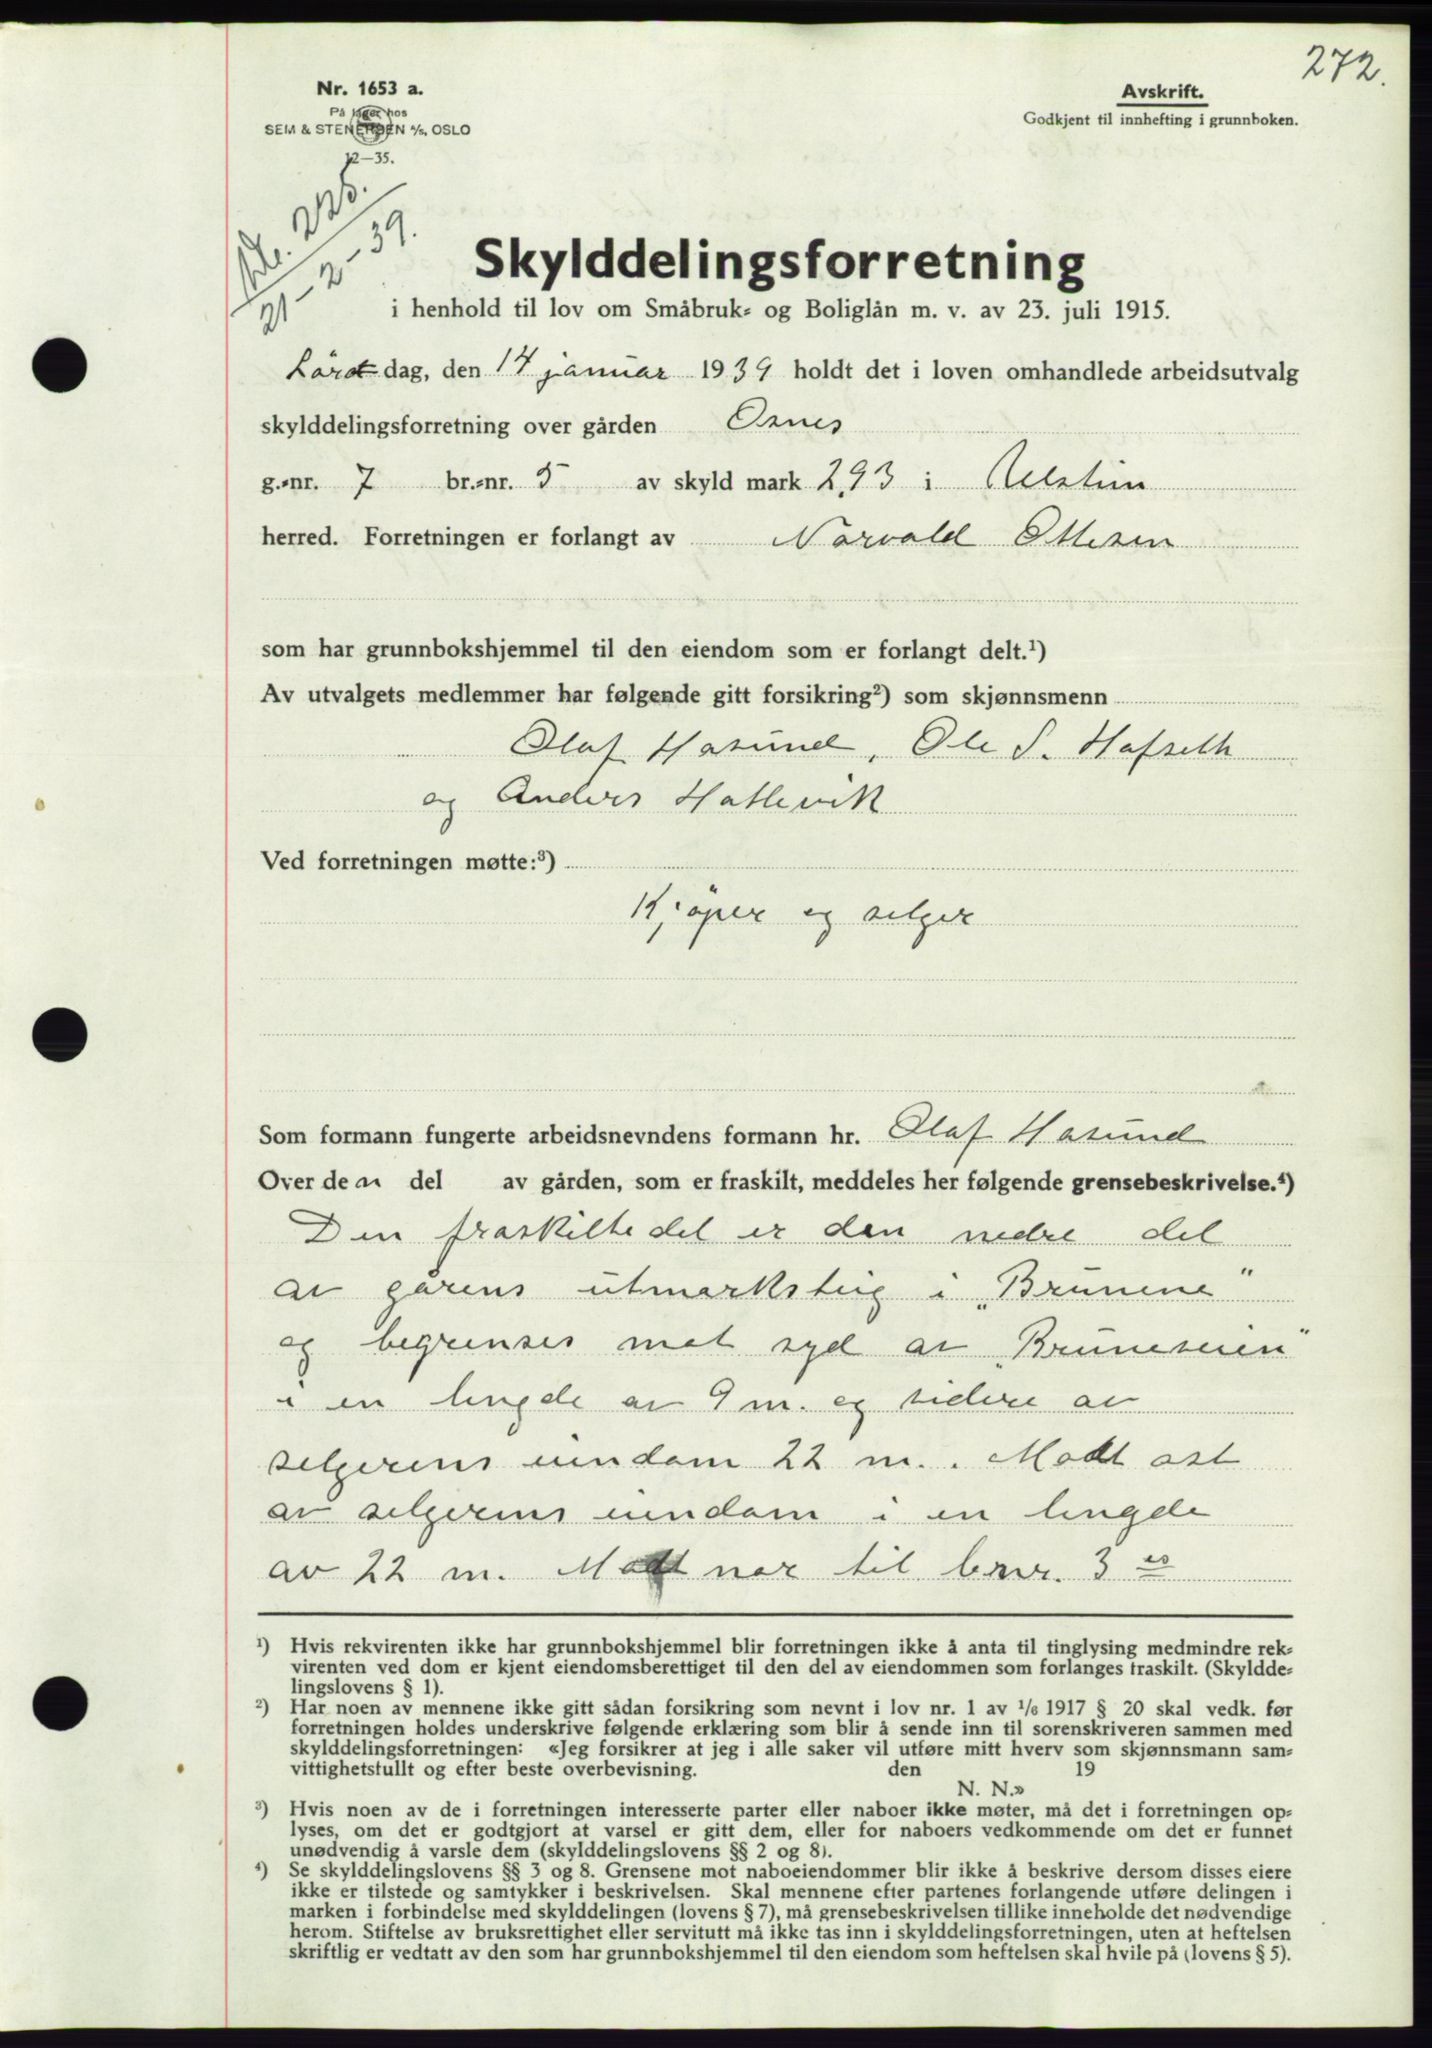 272.
Nr. 1653 a.
På lager hos
SEM & STENERSEN A/S, OSLO
12—35.
Avskrift.
Godkjent til innhefting i grunnboken.
225.
21-2-39.
Skylddelingsforretning
i henhold til lov om Småbruk- og Boliglån m. v. av 23. juli 1915.
Lördag, den 14 januar 1939 holdt det i loven omhandlede arbeidsutvalg
skylddelingsforretning over gården Osnes
g.-nr. 7 br.-nr. 5 av skyld mark 2,93 i Ulstein
herred. Forretningen er forlangt av Norvald Ottesen
som har grunnbokshjemmel til den eiendom som er forlangt delt.¹)
Av utvalgets medlemmer har følgende gitt forsikring²) som skjønnsmenn
Olaf Hasund, Ole S. Hafseth
og Anders Hatlevik
Ved forretningen møtte:³)
Kjöper og selger
Som formann fungerte arbeidsnevndens formann hr. Olaf Hasund
Over den del av gården, som er fraskilt, meddeles her følgende grensebeskrivelse.⁴)
Den fraskilte del er den nedre del
av gårens utmarksteig i „Brunene"
og begrenses mot syd av „Bruneveien"
i en lengde av 9 m. og videre av
selgerens eiendom 22 m.. Modt ost
av selgerens eiendom i en lengde
av 22 m. Modt nor til brnr. 3 es
¹) Hvis rekvirenten ikke har grunnbokshjemmel blir forretningen ikke å anta til tinglysing medmindre rek-
virenten ved dom er kjent eiendomsberettiget til den del av eiendommen som forlanges fraskilt. (Skyldde-
lingslovens § 1).
²) Har noen av mennene ikke gitt sådan forsikring som nevnt i lov nr. 1 av 1/6 1917 § 20 skal vedk. før
forretningen holdes underskrive følgende erklæring som blir å sende inn til sorenskriveren sammen med
skylddelingsforretningen: «Jeg forsikrer at jeg i alle saker vil utføre mitt hverv som skjønnsmann sam-
vittighetsfullt og efter beste overbevisning. den 19
N. N.»
³) Hvis noen av de i forretningen interesserte parter eller naboer ikke møter, må det i forretningen op-
lyses, om det er godtgjort at varsel er gitt dem, eller for naboers vedkommende om det er funnet
unødvendig å varsle dem (skylddelingslovens §§ 2 og 8).
⁴) Se skylddelingslovens §§ 3 og 8. Grensene mot naboeiendommer blir ikke å beskrive dersom disses eiere
ikke er tilstede og samtykker i beskrivelsen. Skal mennene efter partenes forlangende utføre delingen i
marken i forbindelse med skylddelingen (lovens § 7), må grensebeskrivelsen tillike inneholde det nødvendige
herom. Stiftelse av bruksrettighet eller servitutt må ikke tas inn i skylddelingsforretningen, uten at heftelsen
skriftlig er vedtatt av den som har grunnbokshjemmel til den eiendom som heftelsen skal hvile på (lovens § 5).